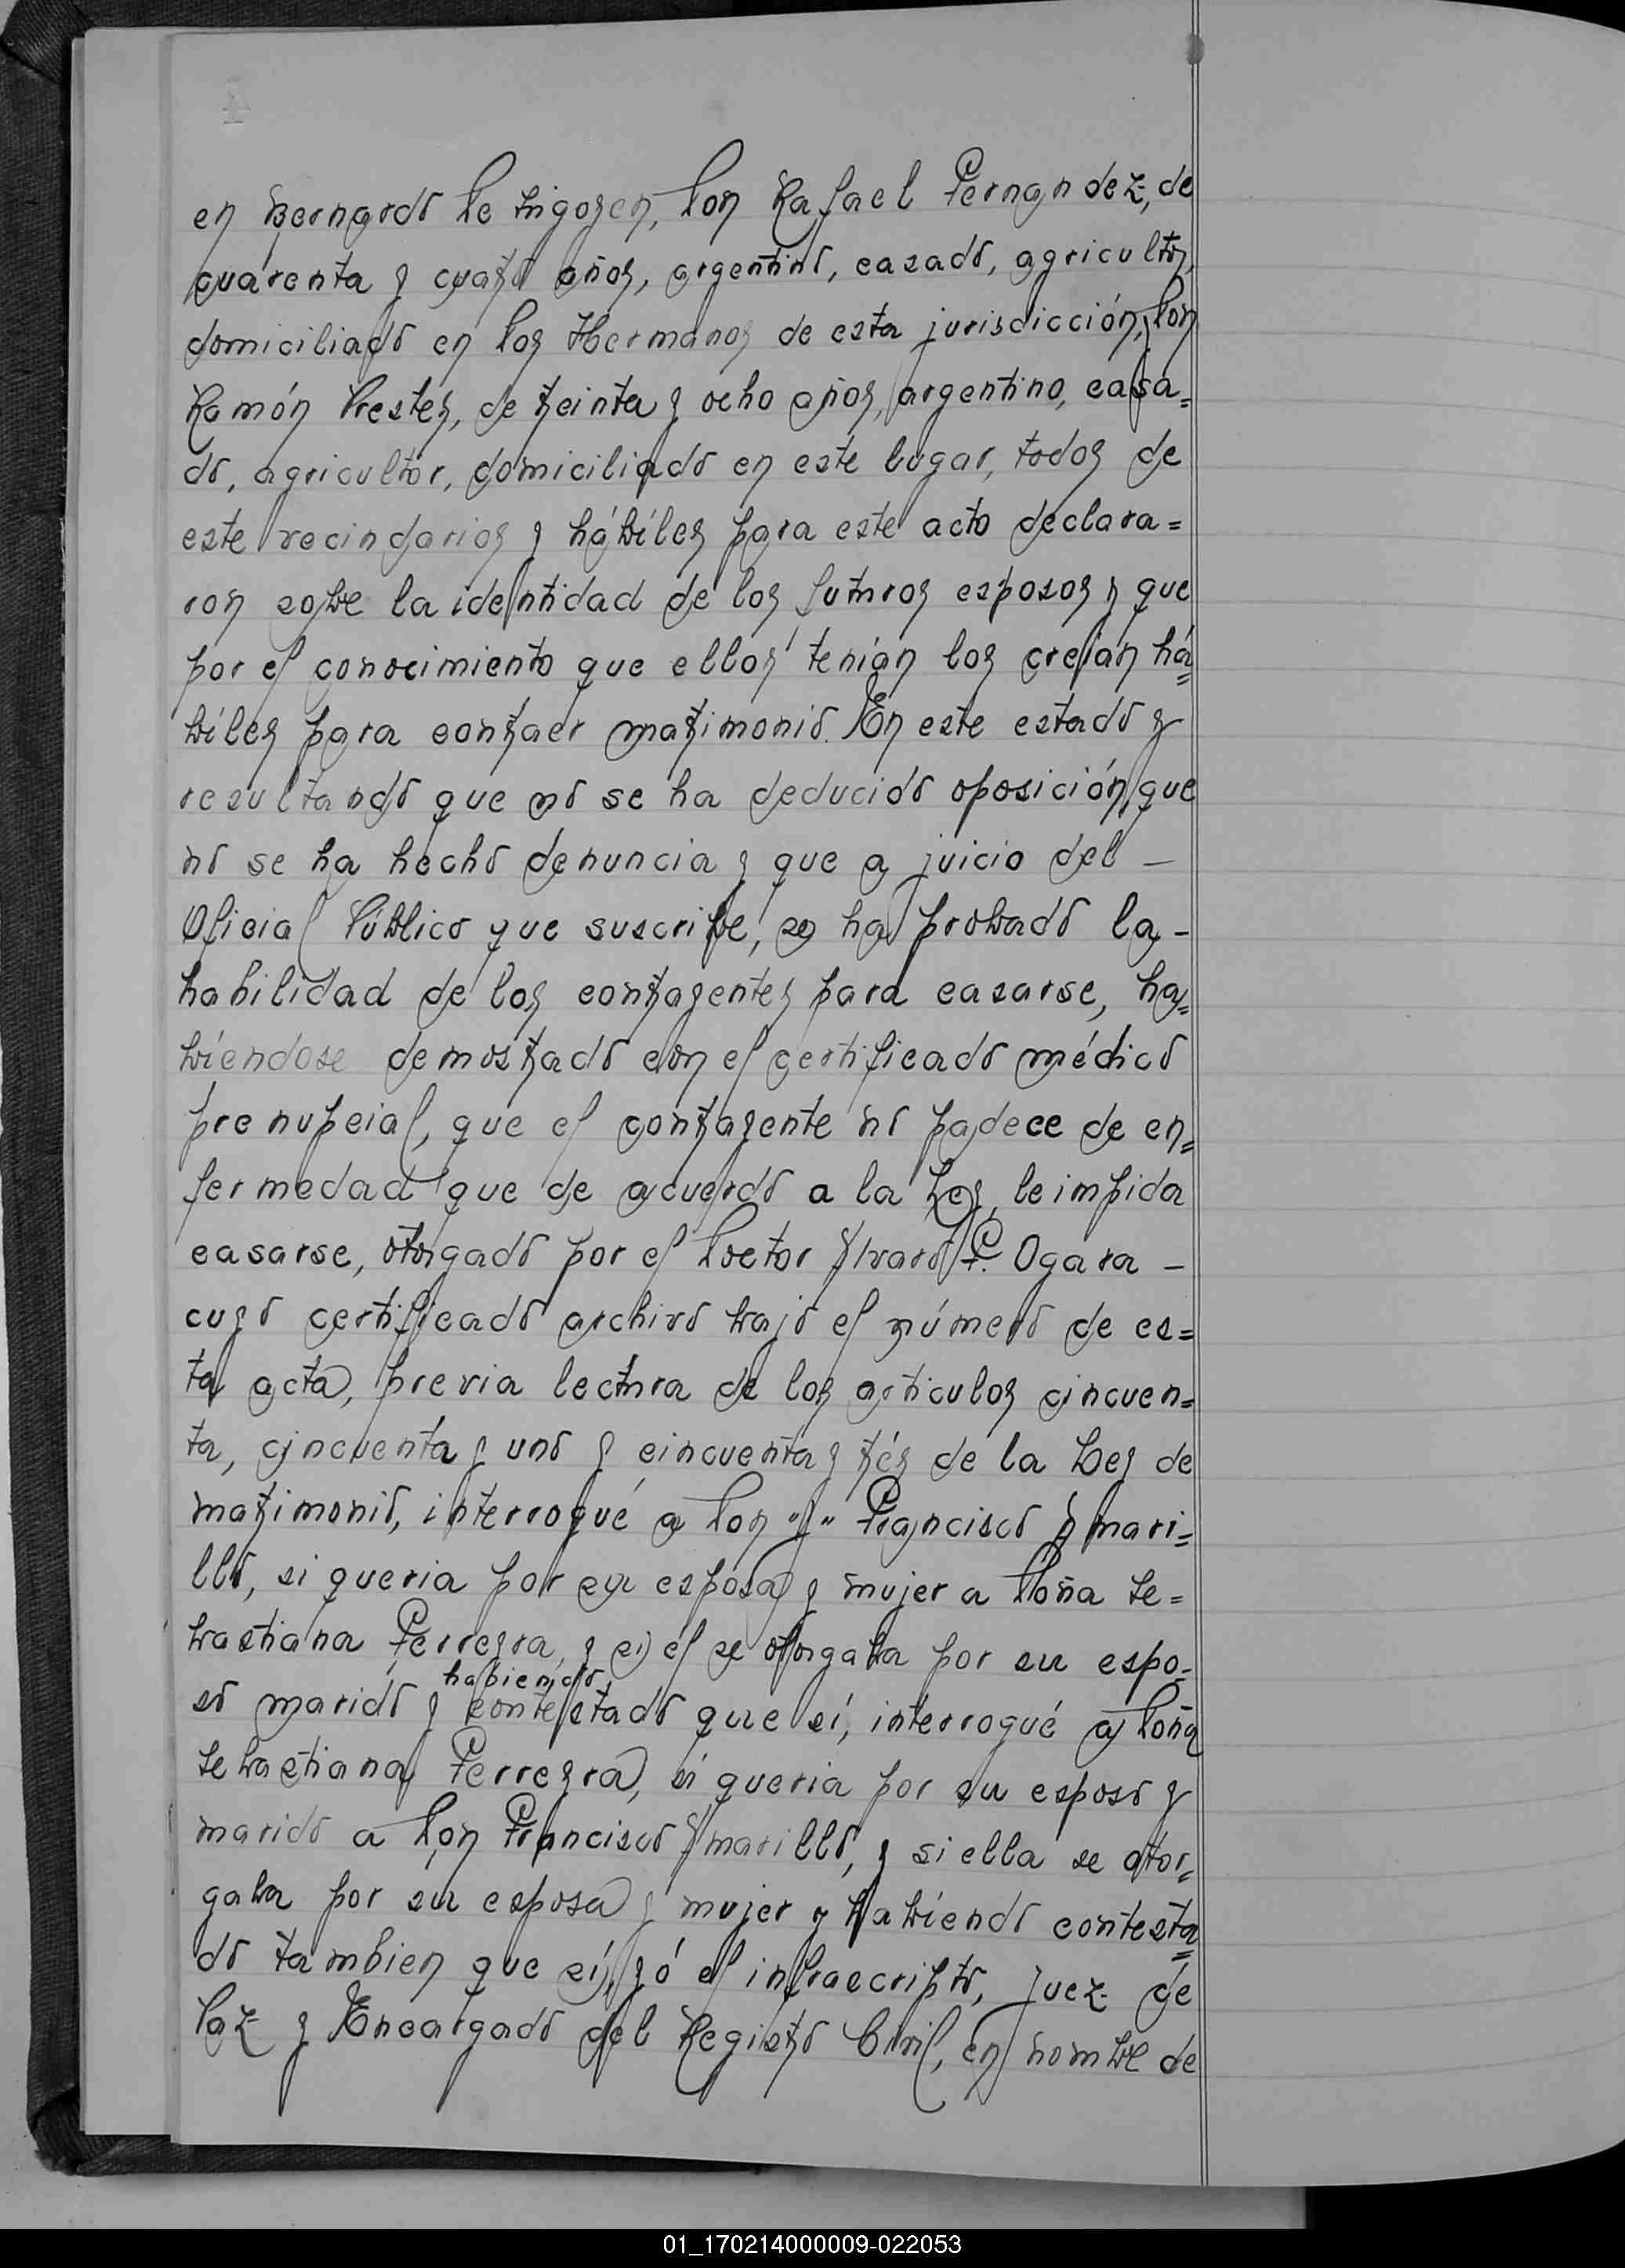 en Bernardo de Irigoyen, Don Rafael Fernandez, de
cuarenta y cuatro años, argentino, casado, agricultor,
domiciliado en Dos Hermanos de esta jurisdicción, y Don
Ramón Prestes, de treinta y ocho años, argentino, casa=
do, agricultor, domiciliado en este lugar, todos de
este vecindarios y hábiles para este acto declara=
ron sobre la identidad de los futuros esposos y que
por el conocimiento que ellos tenian los creian há=
biles para contraer matrimonio. En este estado y
resultando que no se ha deducido oposición, que
no se ha hecho denuncia y que a juicio del -
Oficial Público que suscribe, se ha probado la -
habilidad de los contrayentes para casarse, ha=
biendose demostrado con el certificado médico
prenupcial, que el contrayente no padece de en=
fermedad que de acuerdo a la Ley, le impida
casarse, otorgado por el Doctor Alvaro F. Ogara -
cuyo certificado archivo bajo el número de es=
ta acta, previa lectura de los articulos cincuen=
ta, cincuenta y uno y cincuenta y trés de la Ley de
matrimonio, interrogué a Don Francisco Amari=
llo, si queria por su esposa y mujer a Doña Se=
bastiana Ferreyra, y si el se otorgaba por su espo=
habiendo
so marido y contestado que sí, interrogué a Doña
Sebastiana Ferreyra, si queria por su esposo y
marido a Don Francisco Amarillo, y si ella se otor=
gaba por su esposa y mujer y habiendo contesta=
do tambien que sí, yó el infrascripto, Juez de
Paz y Encargado del Registro Civil, en nombre de
01_170214000009-022053